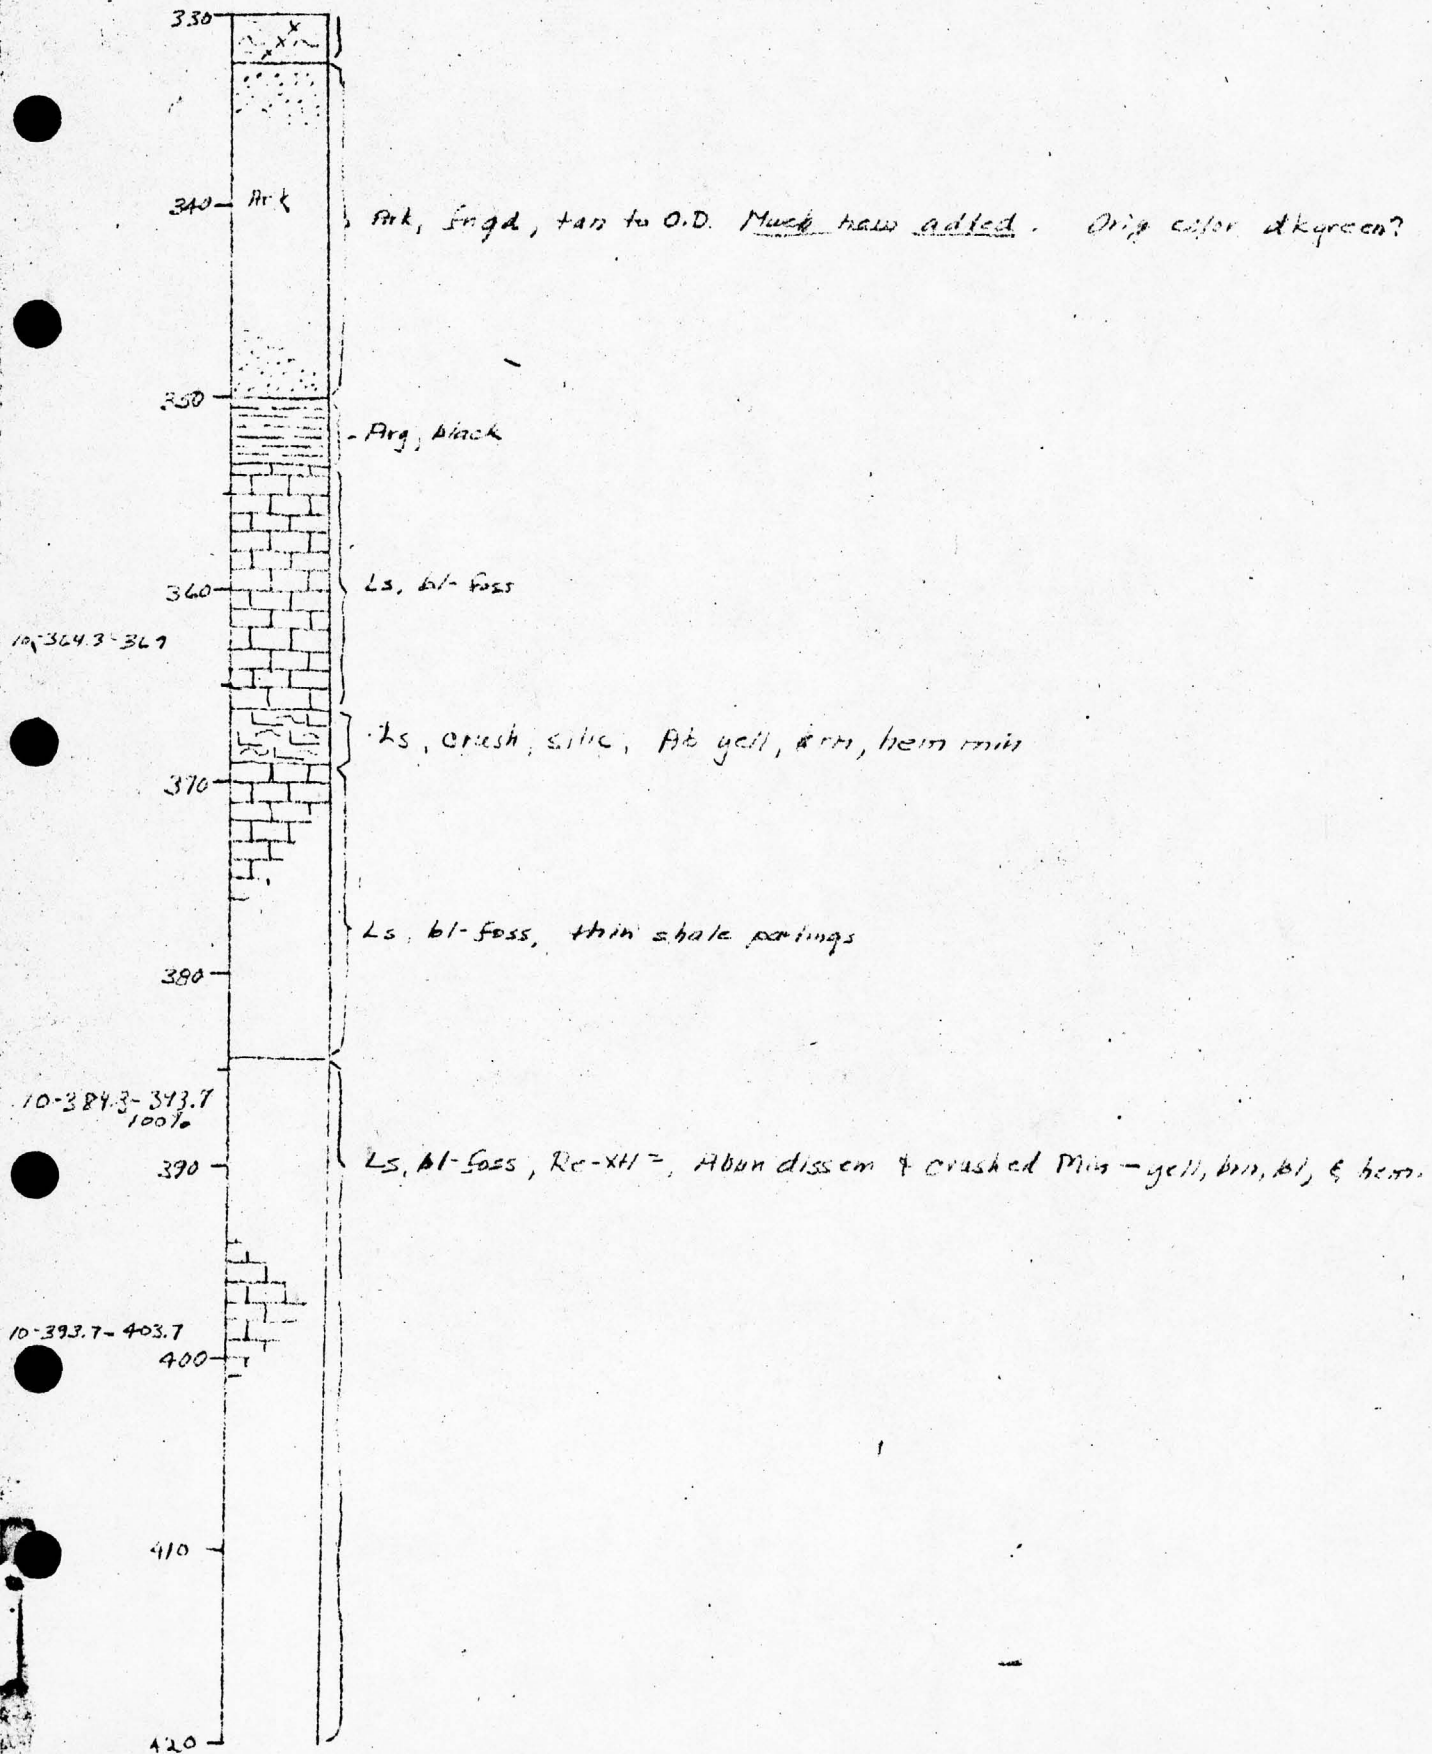 330
340
Ark
Ark, fngd, tan to O.D. Much hem added. Orig color dkgreen?
350
Arg, black
360
Ls, bl-foss
10-364.3-367
Ls, crush, silic, Ab yell, brn, hem min
370
Ls, bl-foss, thin shale partings
380
10-384.3-393.7
100%
390
Ls, bl-foss, Re-xtl=, Abun dissem & crushed Min - yell, brn, bl, & hem.
10-393.7-403.7
400
410
420